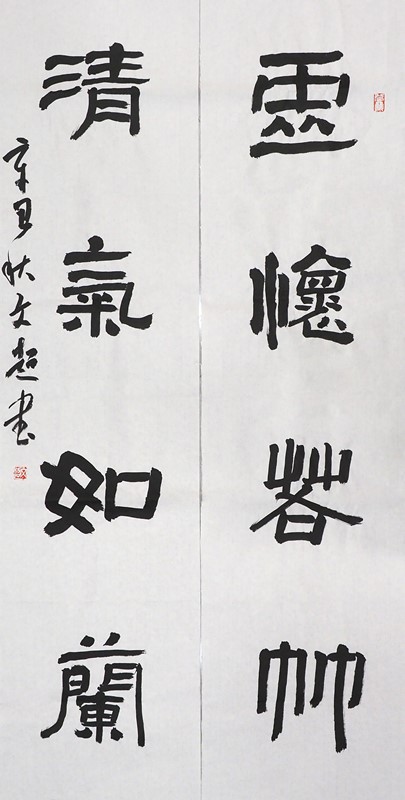 虛懷若竹
清氣如蘭
辛丑秋文超書